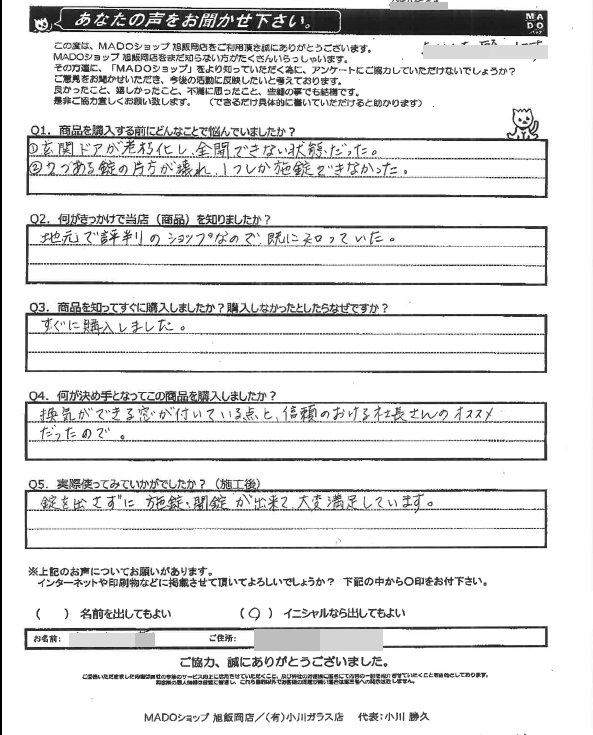 あなたの声をお聞かせ下さい。
MADO
この度は、MADOショップ 旭飯岡店をご利用頂き誠にありがとうございます。
MADOショップ 旭飯岡店をまだ知らない方がたくさんいらっしゃいます。
その方達に、「MADOショップ」をより知っていただく為に、アンケートにご協力していただけないでしょうか?
ご意見をお聞かせいただき、今後の活動に反映したいと考えております。
良かったこと、嬉しかったこと、不満に思ったこと、些細の事でも結構です。
是非ご協力宜しくお願い致します。 (できるだけ具体的に書いていただけると助かります)
Q1. 商品を購入する前にどんなことで悩んでいましたか?
①玄関ドアが老朽化し、全開できない状態だった。
②2つある錠の片方が壊れ、1つしか施錠できなかった。
Q2. 何がきっかけで当店(商品)を知りましたか?
地元で評判のショップなので、既に知っていた。
Q3. 商品を知ってすぐに購入しましたか?購入しなかったとしたらなぜですか?
すぐに購入しました。
Q4. 何が決め手となってこの商品を購入しましたか?
換気ができる窓が付いている点と、信頼のおける社長さんのオススメ
だったので。
Q5. 実際使ってみていかがでしたか?(施工後)
錠を出さずに施錠・開錠が出来て、大変満足しています。
※上記のお声についてお願いがあります。
インターネットや印刷物などに掲載させて頂いてよろしいでしょうか? 下記の中から○印をお付下さい。
( ) 名前を出してもよい (○) イニシャルなら出してもよい
お名前: ご住所:
ご協力、誠にありがとうございました。
MADOショップ 旭飯岡店/(有)小川ガラス店 代表:小川 勝久